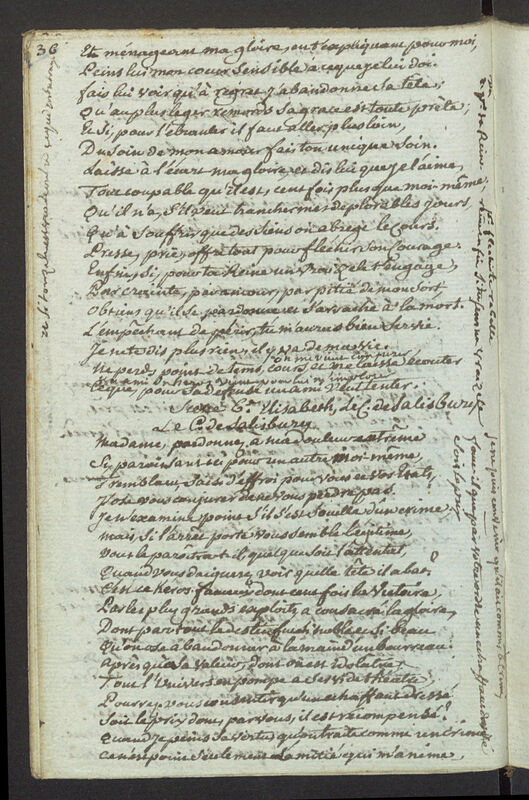 36
Et ménageant ma gloire, en t'expliquant pour moi,
Peins lui mon coeur sensible a ce que je lui doi.
fais lui voir qu'à regret j'abandonne sa tête;
Qu'au plus leger remords sa grace est toute prête;
Et si, pour l'ébranler il faut aller plus loin,
Du soin de mon amour fais ton unique soin.
Laisse à l'écart ma gloire et dis lui que je l'aime,
Tout coupable qu'il est, cent fois plus que moi-même;
Qu'il n'a, s'il veut trancher mes déplorables jours
Qu'à souffrir que des siens on abrege le cours.
Presse, prie, offre tout pour flechir son courage.
Enfin, si pour ta Reine un vrai zele t'engage,
Par crainte, par amour, par pitié de mon sort
Obtiens qu'il se pardonne et s'arrache à la mort.
L'empechant de périr, tu m'auras bien servie.
Je ne te dis plus rien, il y va de ma vie.
Ne perds point de tems, cours, et me laisse écouter
Ce que pour sa défense un ami vient tenter.
Scene 6.e Elisabeth, le C. de Salisbury
Le C. de Salisbury
Madame, pardonnez a ma douleur extrême
Si, paroissant ici pour un autre moi-même,
Tremblant, saisi d'effroi pour vous et vos Etats,
J'ose vous conjurer de ne vous perdre pas.
Je n'examine point s'il s'est souillé d'un crime
mais, si l'arrêt porté vous semble légitime,
Vous le paroitra-t-il quelque soit l'attentat,
Quand vous daignerez voir quelle tête il abat?
C'est ce heros fameux dont cent fois la Victoire
Par les plus grands exploits a consacré la gloire,
Dont par tout le destin fut si noble et si beau
Qu'on ose abandonner à la main d'un bourreau.
Après que sa valeur, dont on est idolatre,
Tout l'Univers en pompe a servi de theatre,
Pourrez-vous consentir qu'un echaffaut dressé
Soit le prix dont, par vous, il est récompensé?
Quand je peins sa vertu, qu'on traite comme un crime
ce n'est point seulement l'amitié qui m'anime,